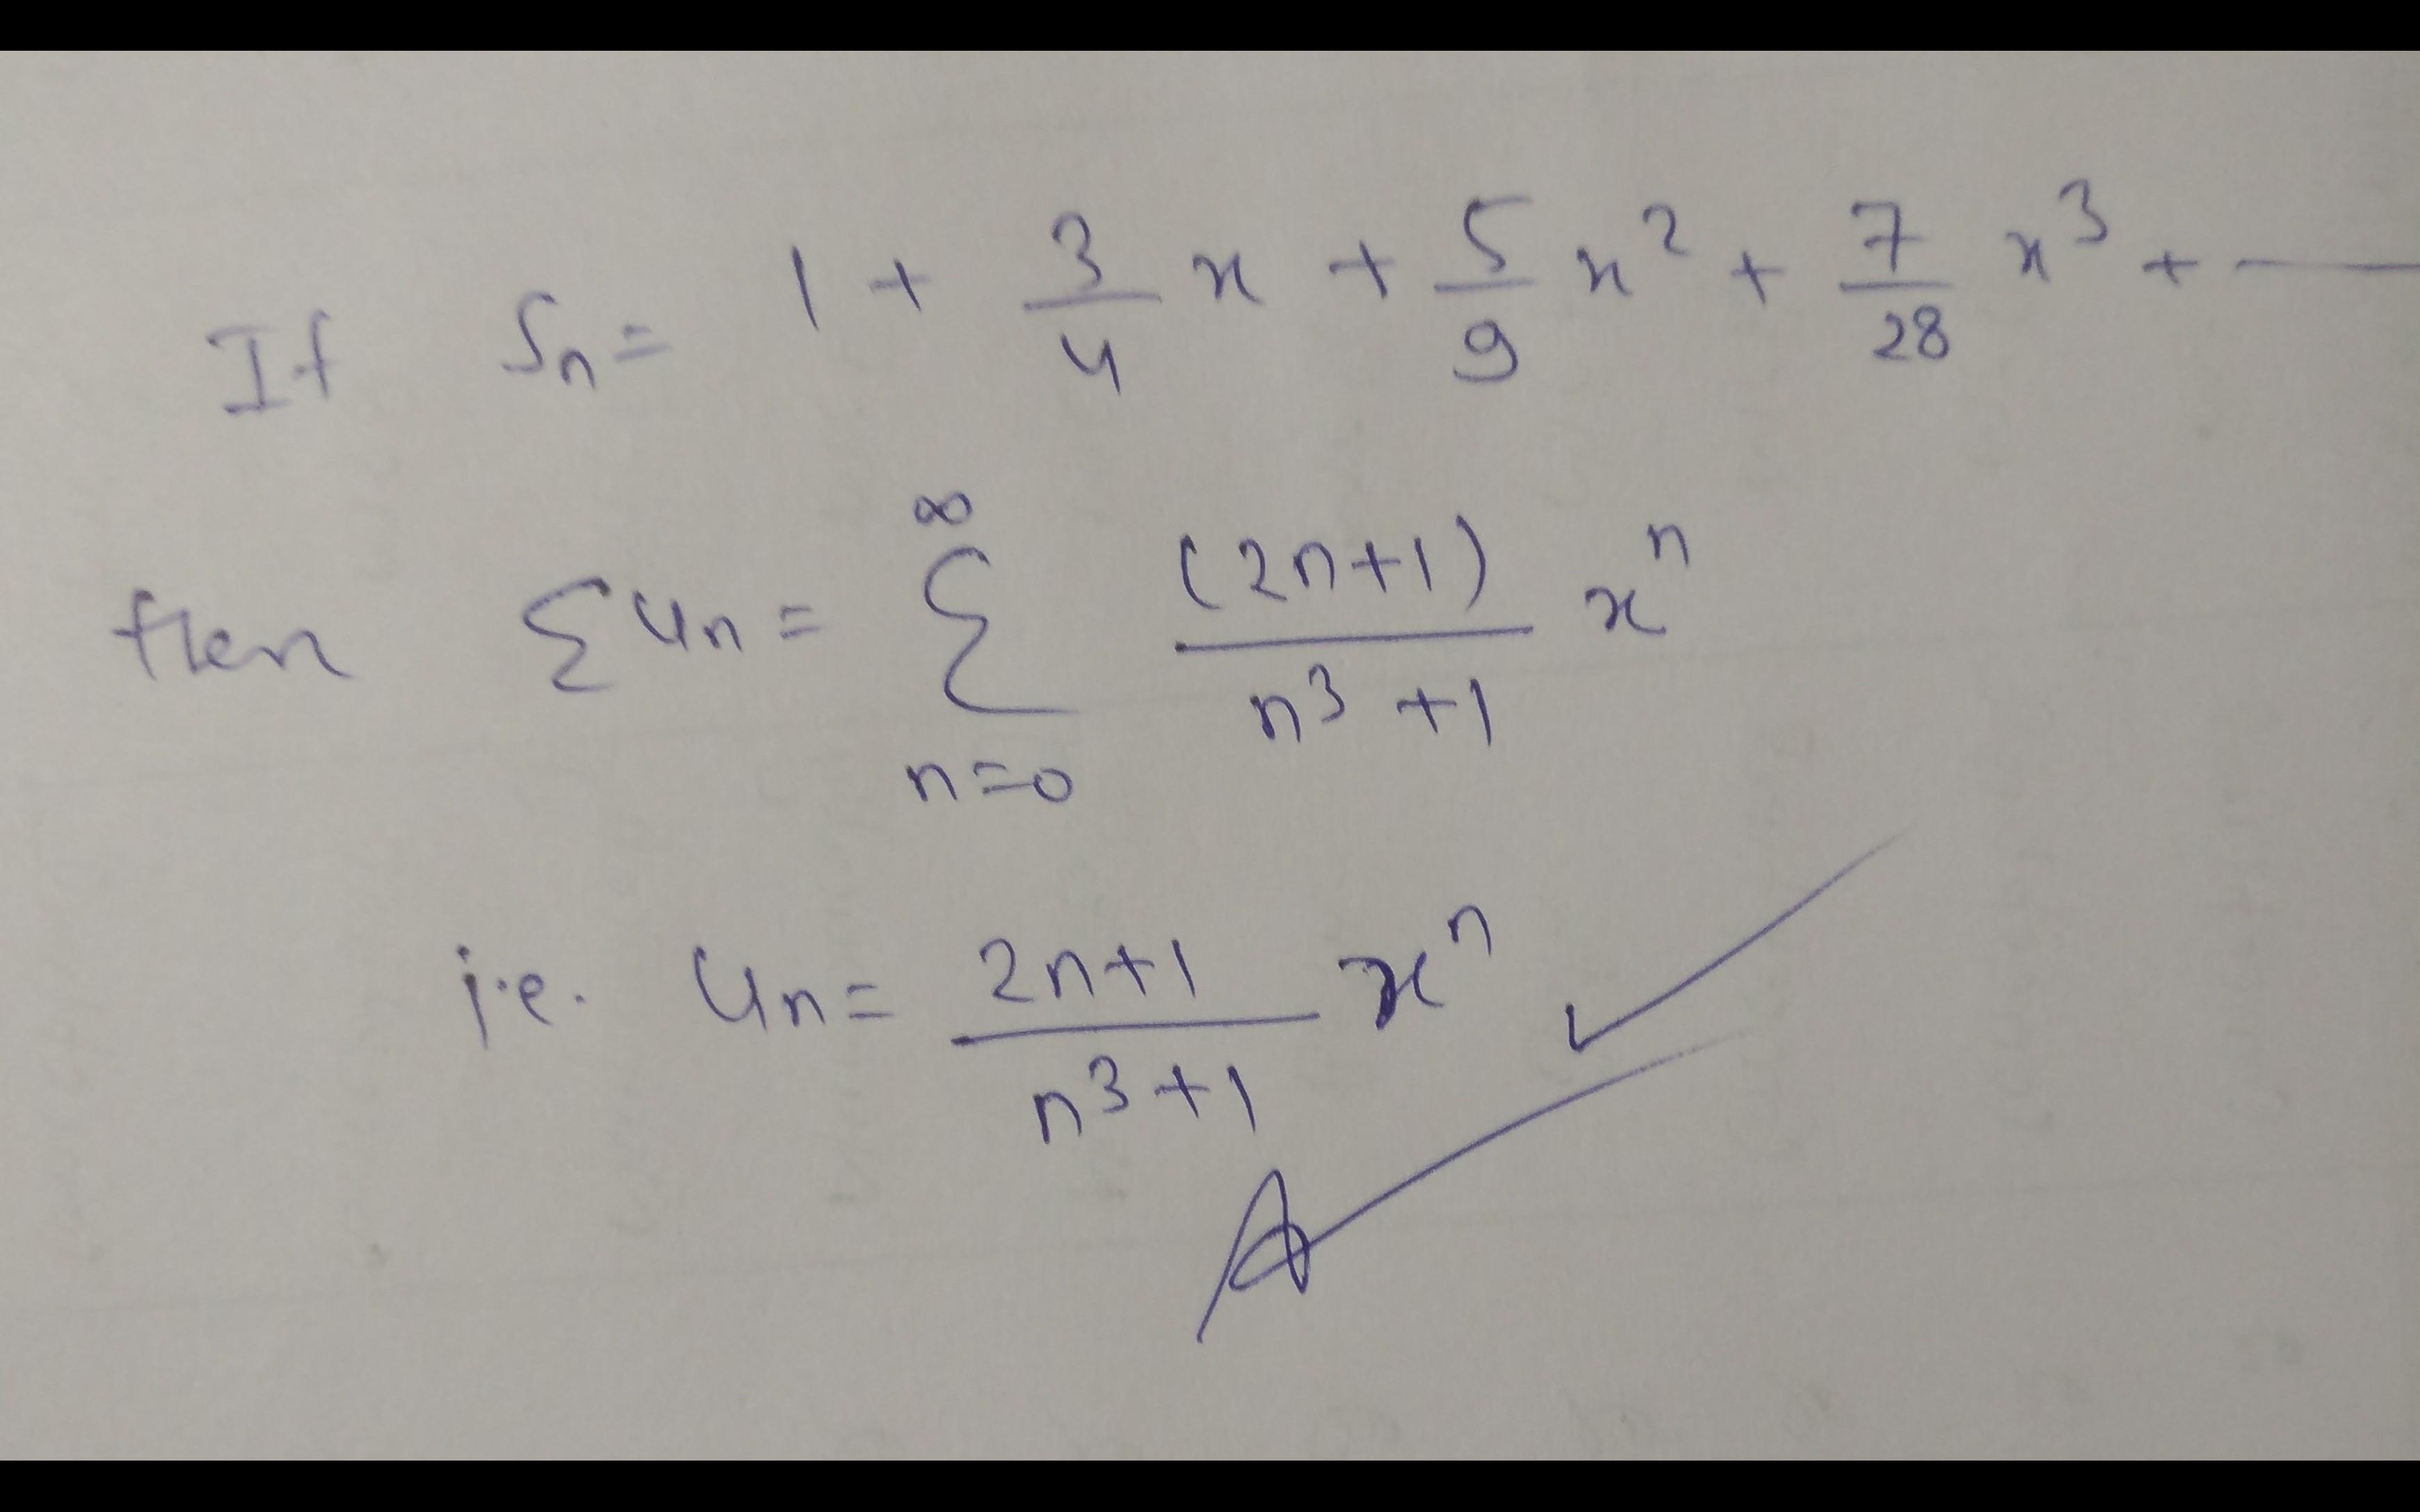 If Sn = 1 + 3/4 x + 5/9 x² + 7/28 x³ + ——
then Σun = ∞Σn=0 (2n+1)/(n³+1) xⁿ
i.e. un = (2n+1)/(n³+1) xⁿ